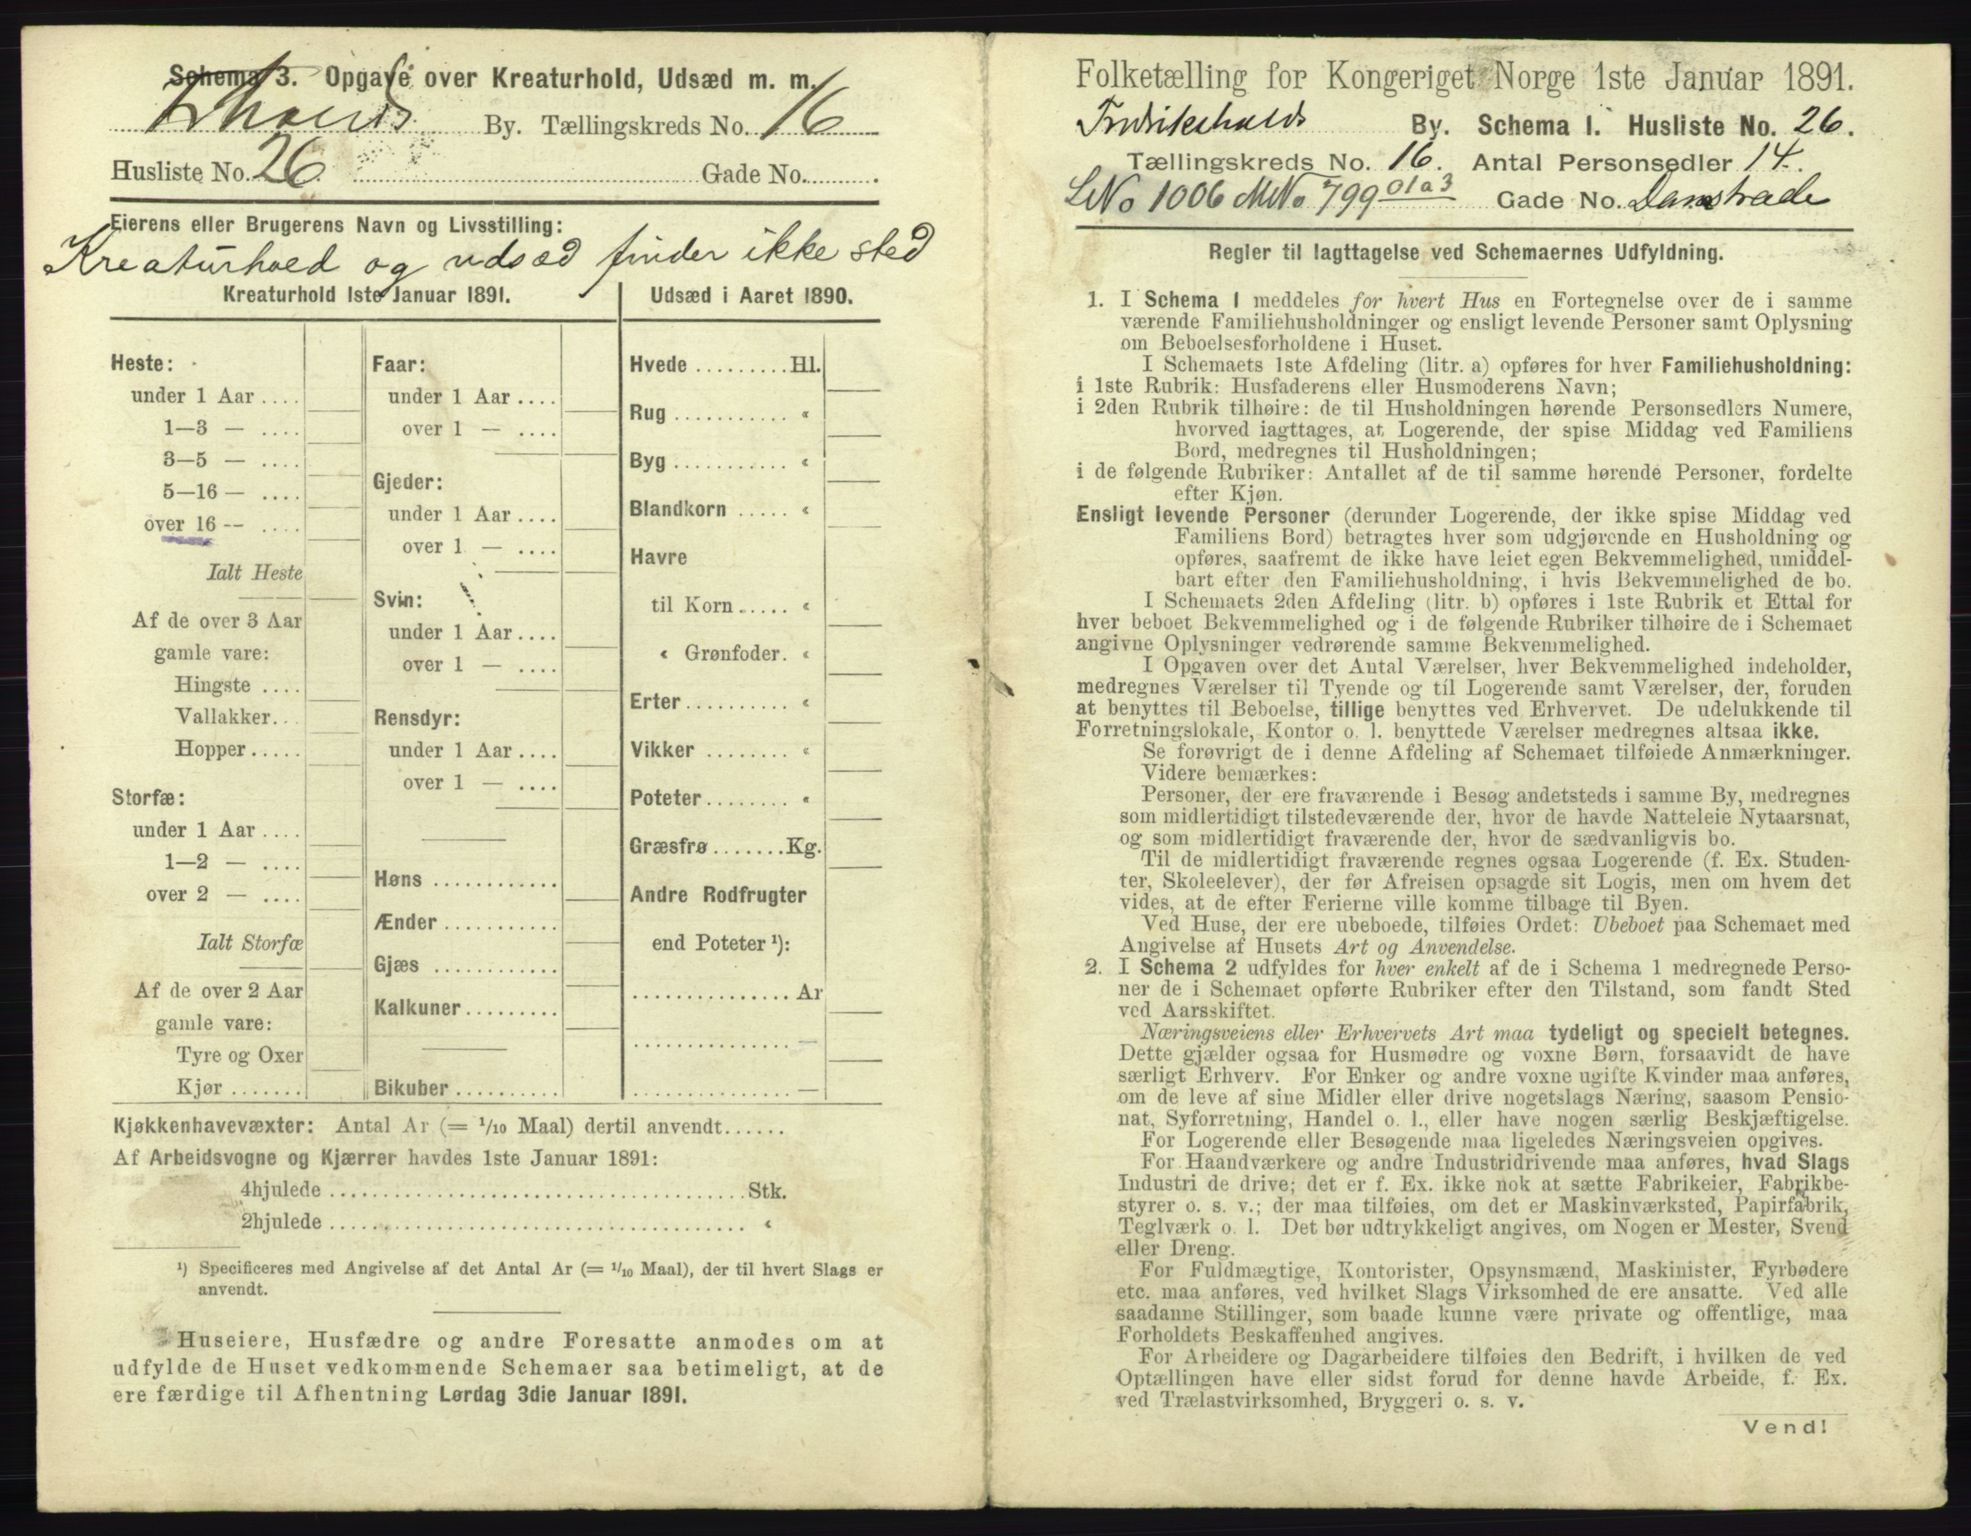 Schema 3. Opgave over Kreaturhold, Udsæd m. m.
By. Tællingskreds No. 16
Husliste No. 26 Gade No.
Eierens eller Brugerens Navn og Livsstilling:
Kreaturhold og udsæd finder ikke sted
Kreaturhold 1ste Januar 1891.
Heste:
under 1 Aar ....
1—3 — ....
3—5 — ....
5—16 — ....
over 16 — ....
Ialt Heste
Af de over 3 Aar
gamle vare:
Hingste ....
Vallakker...
Hopper.....
Storfæ:
under 1 Aar ....
1—2 — ....
over 2 — ....
Ialt Storfæ
Af de over 2 Aar
gamle vare:
Tyre og Oxer
Kjør .......
Faar:
under 1 Aar ....
over 1 — ....
Gjeder:
under 1 Aar ....
over 1 — ....
Svin:
under 1 Aar ....
over 1 — ....
Rensdyr:
under 1 Aar ....
over 1 — ....
Høns ............
Ænder ...........
Gjæs ............
Kalkuner.........
Bikuber ..........
Udsæd i Aaret 1890.
Hvede .........Hl.
Rug ........... «
Byg ........... «
Blandkorn ..... «
Havre
til Korn ..... «
« Grønfoder. «
Erter .......... «
Vikker ......... «
Poteter........ «
Græsfrø.......Kg.
Andre Rodfrugter
end Poteter ¹):
............... Ar
............... —
............... —
Kjøkkenhavevæxter: Antal Ar (= 1/10 Maal) dertil anvendt......
Af Arbeidsvogne og Kjærrer havdes 1ste Januar 1891:
4hjulede ..................................... Stk.
2hjulede ..................................... «
¹) Specificeres med Angivelse af det Antal Ar (= 1/10 Maal), der til hvert Slags er
anvendt.
Huseiere, Husfædre og andre Foresatte anmodes om at
udfylde de Huset vedkommende Schemaer saa betimeligt, at de
ere færdige til Afhentning Lørdag 3die Januar 1891.
Folketælling for Kongeriget Norge 1ste Januar 1891.
Fredrikshalds By. Schema 1. Husliste No. 26.
Tællingskreds No. 16. Antal Personsedler 14.
LNo 1006 MNo 799 01a3 Gade No. Damstræde
Regler til Iagttagelse ved Schemaernes Udfyldning.
1. I Schema 1 meddeles for hvert Hus en Fortegnelse over de i samme
værende Familiehusholdninger og ensligt levende Personer samt Oplysning
om Beboelsesforholdene i Huset.
I Schemaets 1ste Afdeling (litr. a) opføres for hver Familiehusholdning:
i 1ste Rubrik: Husfaderens eller Husmoderens Navn;
i 2den Rubrik tilhøire: de til Husholdningen hørende Personsedlers Numere,
hvorved iagttages, at Logerende, der spise Middag ved Familiens
Bord, medregnes til Husholdningen;
i de følgende Rubriker: Antallet af de til samme hørende Personer, fordelte
efter Kjøn.
Ensligt levende Personer (derunder Logerende, der ikke spise Middag ved
Familiens Bord) betragtes hver som udgjørende en Husholdning og
opføres, saafremt de ikke have leiet egen Bekvemmelighed, umiddel-
bart efter den Familiehusholdning, i hvis Bekvemmelighed de bo.
I Schemaets 2den Afdeling (litr. b) opføres i 1ste Rubrik et Ettal for
hver beboet Bekvemmelighed og i de følgende Rubriker tilhøire de i Schemaet
angivne Oplysninger vedrørende samme Bekvemmelighed.
I Opgaven over det Antal Værelser, hver Bekvemmelighed indeholder,
medregnes Værelser til Tyende og til Logerende samt Værelser, der, foruden
at benyttes til Beboelse, tillige benyttes ved Erhvervet. De udelukkende til
Forretningslokale, Kontor o. l. benyttede Værelser medregnes altsaa ikke.
Se forøvrigt de i denne Afdeling af Schemaet tilføiede Anmærkninger.
Videre bemærkes:
Personer, der ere fraværende i Besøg andetsteds i samme By, medregnes
som midlertidigt tilstedeværende der, hvor de havde Natteleie Nytaarsnat,
og som midlertidigt fraværende der, hvor de sædvanligvis bo.
Til de midlertidigt fraværende regnes ogsaa Logerende (f. Ex. Studen-
ter, Skoleelever), der før Afreisen opsagde sit Logis, men om hvem det
vides, at de efter Ferierne ville komme tilbage til Byen.
Ved Huse, der ere ubeboede, tilføies Ordet: Ubeboet paa Schemaet med
Angivelse af Husets Art og Anvendelse.
2. I Schema 2 udfyldes for hver enkelt af de i Schema 1 medregnede Perso-
ner de i Schemaet opførte Rubriker efter den Tilstand, som fandt Sted
ved Aarsskiftet.
Næringsveiens eller Erhvervets Art maa tydeligt og specielt betegnes.
Dette gjælder ogsaa for Husmødre og voxne Børn, forsaavidt de have
særligt Erhverv. For Enker og andre voxne ugifte Kvinder maa anføres,
om de leve af sine Midler eller drive nogetslags Næring, saasom Pensio-
nat, Syforretning, Handel o. l., eller have nogen særlig Beskjæftigelse.
For Logerende eller Besøgende maa ligeledes Næringsveien opgives.
For Haandværkere og andre Industridrivende maa anføres, hvad Slags
Industri de drive; det er f. Ex. ikke nok at sætte Fabrikeier, Fabrikbe-
styrer o. s. v.; der maa tilføies, om det er Maskinværksted, Papirfabrik,
Teglværk o. l. Det bør udtrykkeligt angives, om Nogen er Mester, Svend
eller Dreng.
For Fuldmægtige, Kontorister, Opsynsmænd, Maskinister, Fyrbødere
etc. maa anføres, ved hvilket Slags Virksomhed de ere ansatte. Ved alle
saadanne Stillinger, som baade kunne være private og offentlige, maa
Forholdets Beskaffenhed angives.
For Arbeidere og Dagarbeidere tilføies den Bedrift, i hvilken de ved
Optællingen have eller sidst forud for denne havde Arbeide, f. Ex.
ved Trælastvirksomhed, Bryggeri o. s. v.
Vend!